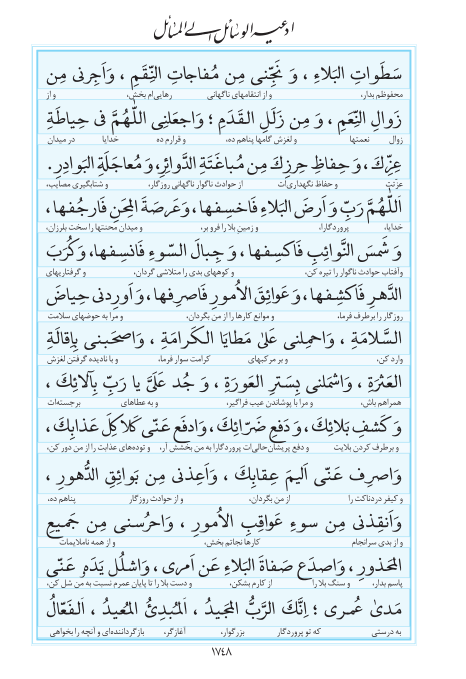 ادعیه الوسائل الی المسائل
سَطَواتِ البَلاءِ ، وَ نَجِّنی مِن مُفاجاتِ النِّقَمِ ، وَ اَجِرنی مِن
محفوظم بدار، و از انتقامهای ناگهانی رهایی‌ام بخش، و از
زَوالِ النِّعَمِ ، وَ مِن زَلَلِ القَدَمِ ؛ وَاجعَلنِی اللّٰهُمَّ فی حِیاطَةِ
زوال نعمتها و لغزش گامها پناهم ده، و قرارم ده خدایا در میدان
عِزِّکَ ، وَ حِفاظِ حِرزِکَ مِن مُباغَتَةِ الدَّوائِرِ، وَ مُعاجَلَةِ البَوادِرِ .
عزتت و حفاظ نگهداری‌ات از حوادث ناگوار ناگهانی روزگار، و شتابگیری مصایب،
اَللّٰهُمَّ رَبِّ وَ اَرضَ البَلاءِ فَاخسِفها ، وَ عَرصَةَ المِحَنِ فَارجُفها ،
خدایا، پروردگارا، و زمین بلا را فرو بر، و میدان محنتها را سخت بلرزان،
وَ شَمسَ النَّوائِبِ فَاکسِفها ، وَ جِبالَ السّوءِ فَانسِفها، وَ کُرَبَ
و آفتاب حوادث ناگوار را تیره کن، و کوههای بدی را متلاشی گردان، و گرفتاریهای
الدَّهرِ فَاکشِفها ، وَ عَوائِقَ الاُمورِ فَاصرِفها ، وَ اَورِدنی حِیاضَ
روزگار را برطرف فرما، و موانع کارها را از من بگردان، و مرا به حوضهای سلامت
السَّلامَةِ ، وَ احمِلنی عَلیٰ مَطایَا الکَرامَةِ ، وَاصحَبنی بِاِقالَةِ
وارد کن، و بر مرکبهای کرامت سوار فرما، و با نادیده گرفتن لغزش
العَثرَةِ ، وَاشمَلنی بِسَترِ العَورَةِ ، وَ جُد عَلَیَّ یا رَبِّ بِآلائِکَ ،
همراهم باش، و مرا با پوشاندن عیب فراگیر، و به عطاهای برجسته‌ات
وَ کَشفِ بَلائِکَ، وَ دَفعِ ضَرّائِکَ، وَادفَع عَنّی کَلاکِلَ عَذابِکَ ،
و برطرف کردن بلایت و دفع پریشان‌حالی‌ات پروردگارا به من بخشش آر، و توده‌های عذابت را از من دور کن،
وَاصرِف عَنّی اَلیمَ عِقابِکَ ، وَ اَعِذنی مِن بَوائِقِ الدُّهورِ ،
و کیفر دردناکت را از من بگردان، و از حوادث روزگار پناهم ده،
وَ اَنقِذنی مِن سوءِ عَواقِبِ الاُمورِ ، وَاحرُسنی مِن جَمیعِ
و از بدی سرانجام کارها نجاتم بخش، و از همه ناملایمات
المَحذورِ ، وَاصدَع صَفاةَ البَلاءِ عَن اَمری ، وَاشلُل یَدَهِ عَنّی
پاسم بدار، و سنگ بلا را از کارم بشکن، و دست بلا را تا پایان عمرم نسبت به من شل کن،
مَدیٰ عُمری ؛ اِنَّکَ الرَّبُّ المَجیدُ ، اَلمُبدِئُ المُعیدُ ، اَلفَعّالُ
به درستی که تو پروردگار بزرگوار، آغازگر، بازگرداننده‌ای و آنچه را بخواهی
۱۷۴۸